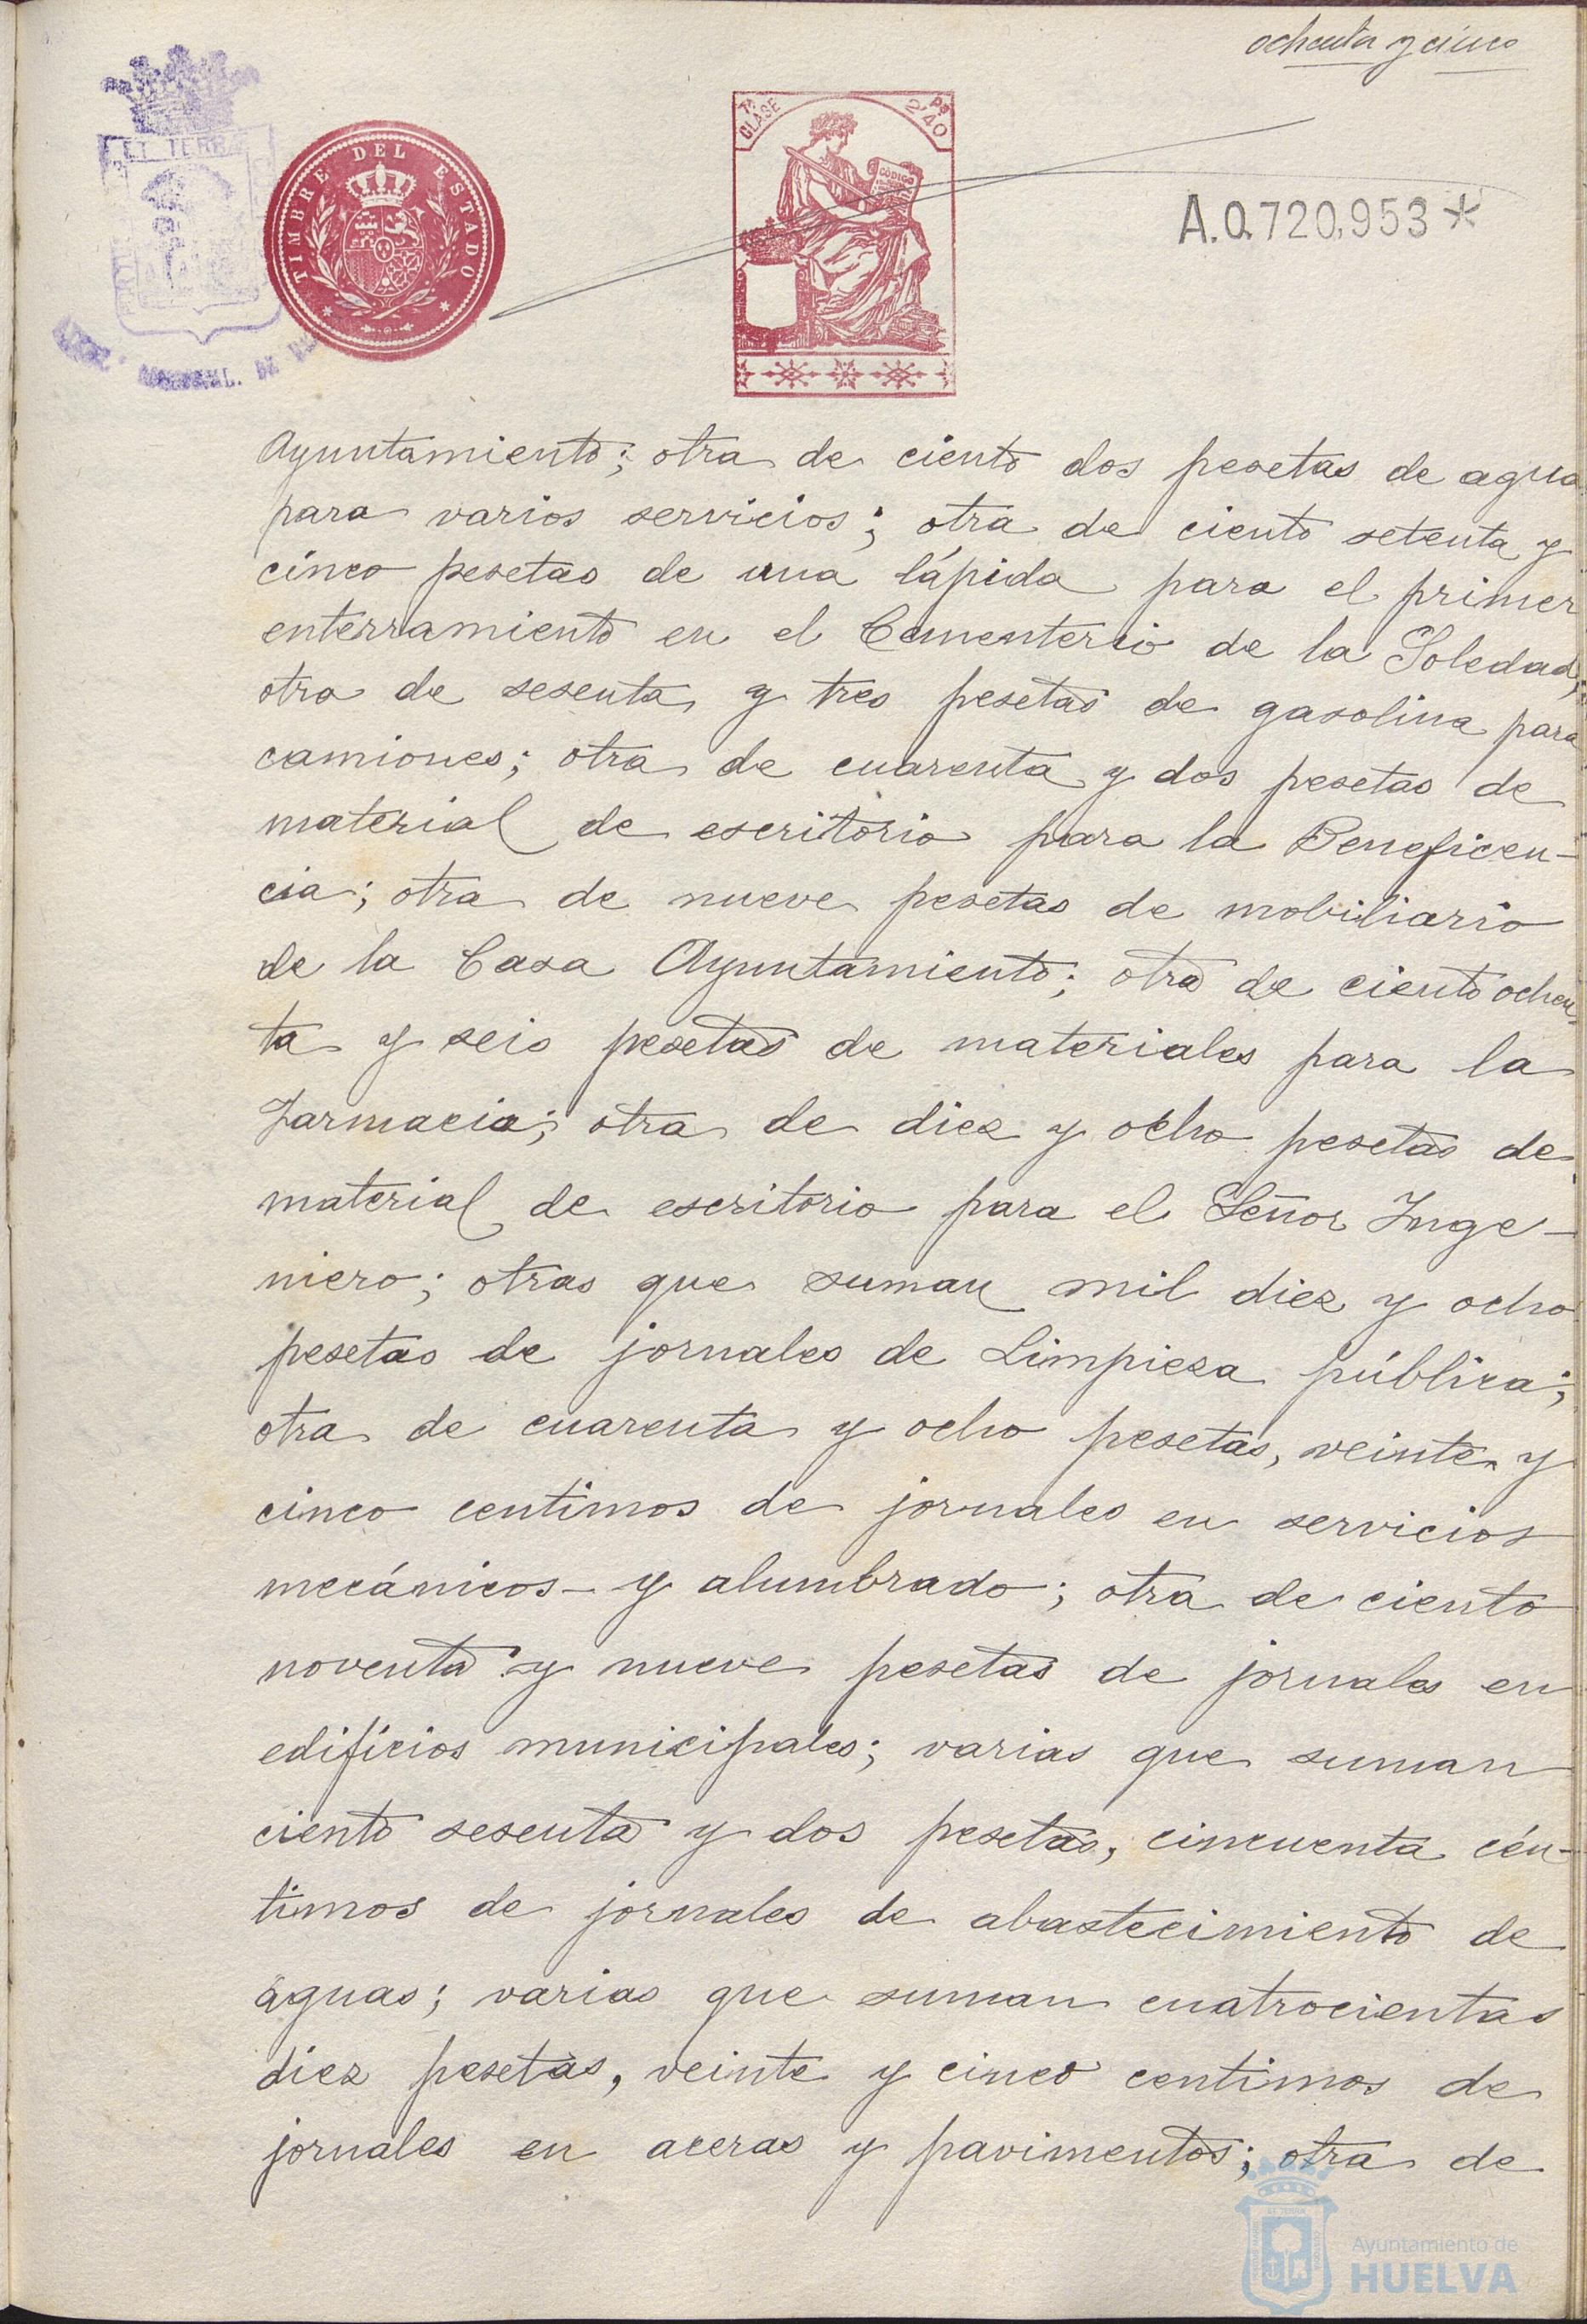 ochenta y cinco
7ª CLASE
2'40 Ps
CÓDIGO
TIMBRE DEL ESTADO
ET TERR
A.0.720,953*
Ayuntamiento; otra de ciento dos pesetas de agua
para varios servicios; otra de ciento setenta y
cinco pesetas de una lápida para el primer
enterramiento en el Cementerio de la Soledad;
otra de sesenta y tres pesetas de gasolina para
camiones; otra de cuarenta y dos pesetas de
material de escritorio para la Beneficen-
cia; otra de nueve pesetas de mobiliario
de la Casa Ayuntamiento; otra de ciento ochen-
ta y seis pesetas de materiales para la
Farmacia; otra de diez y ocho pesetas de
material de escritorio para el Señor Inge-
niero; otras que suman mil diez y ocho
pesetas de jornales de Limpieza pública;
otra de cuarenta y ocho pesetas, veinte y
cinco centimos de jornales en servicios
mecánicos y alumbrado; otra de ciento
noventa y nueve pesetas de jornales en
edificios municipales; varias que suman
ciento sesenta y dos pesetas, cincuenta cén-
timos de jornales de abastecimiento de
aguas; varias que suman cuatrocientas
diez pesetas, veinte y cinco centimos de
jornales en aceras y pavimentos; otra de
Ayuntamiento de
HUELVA